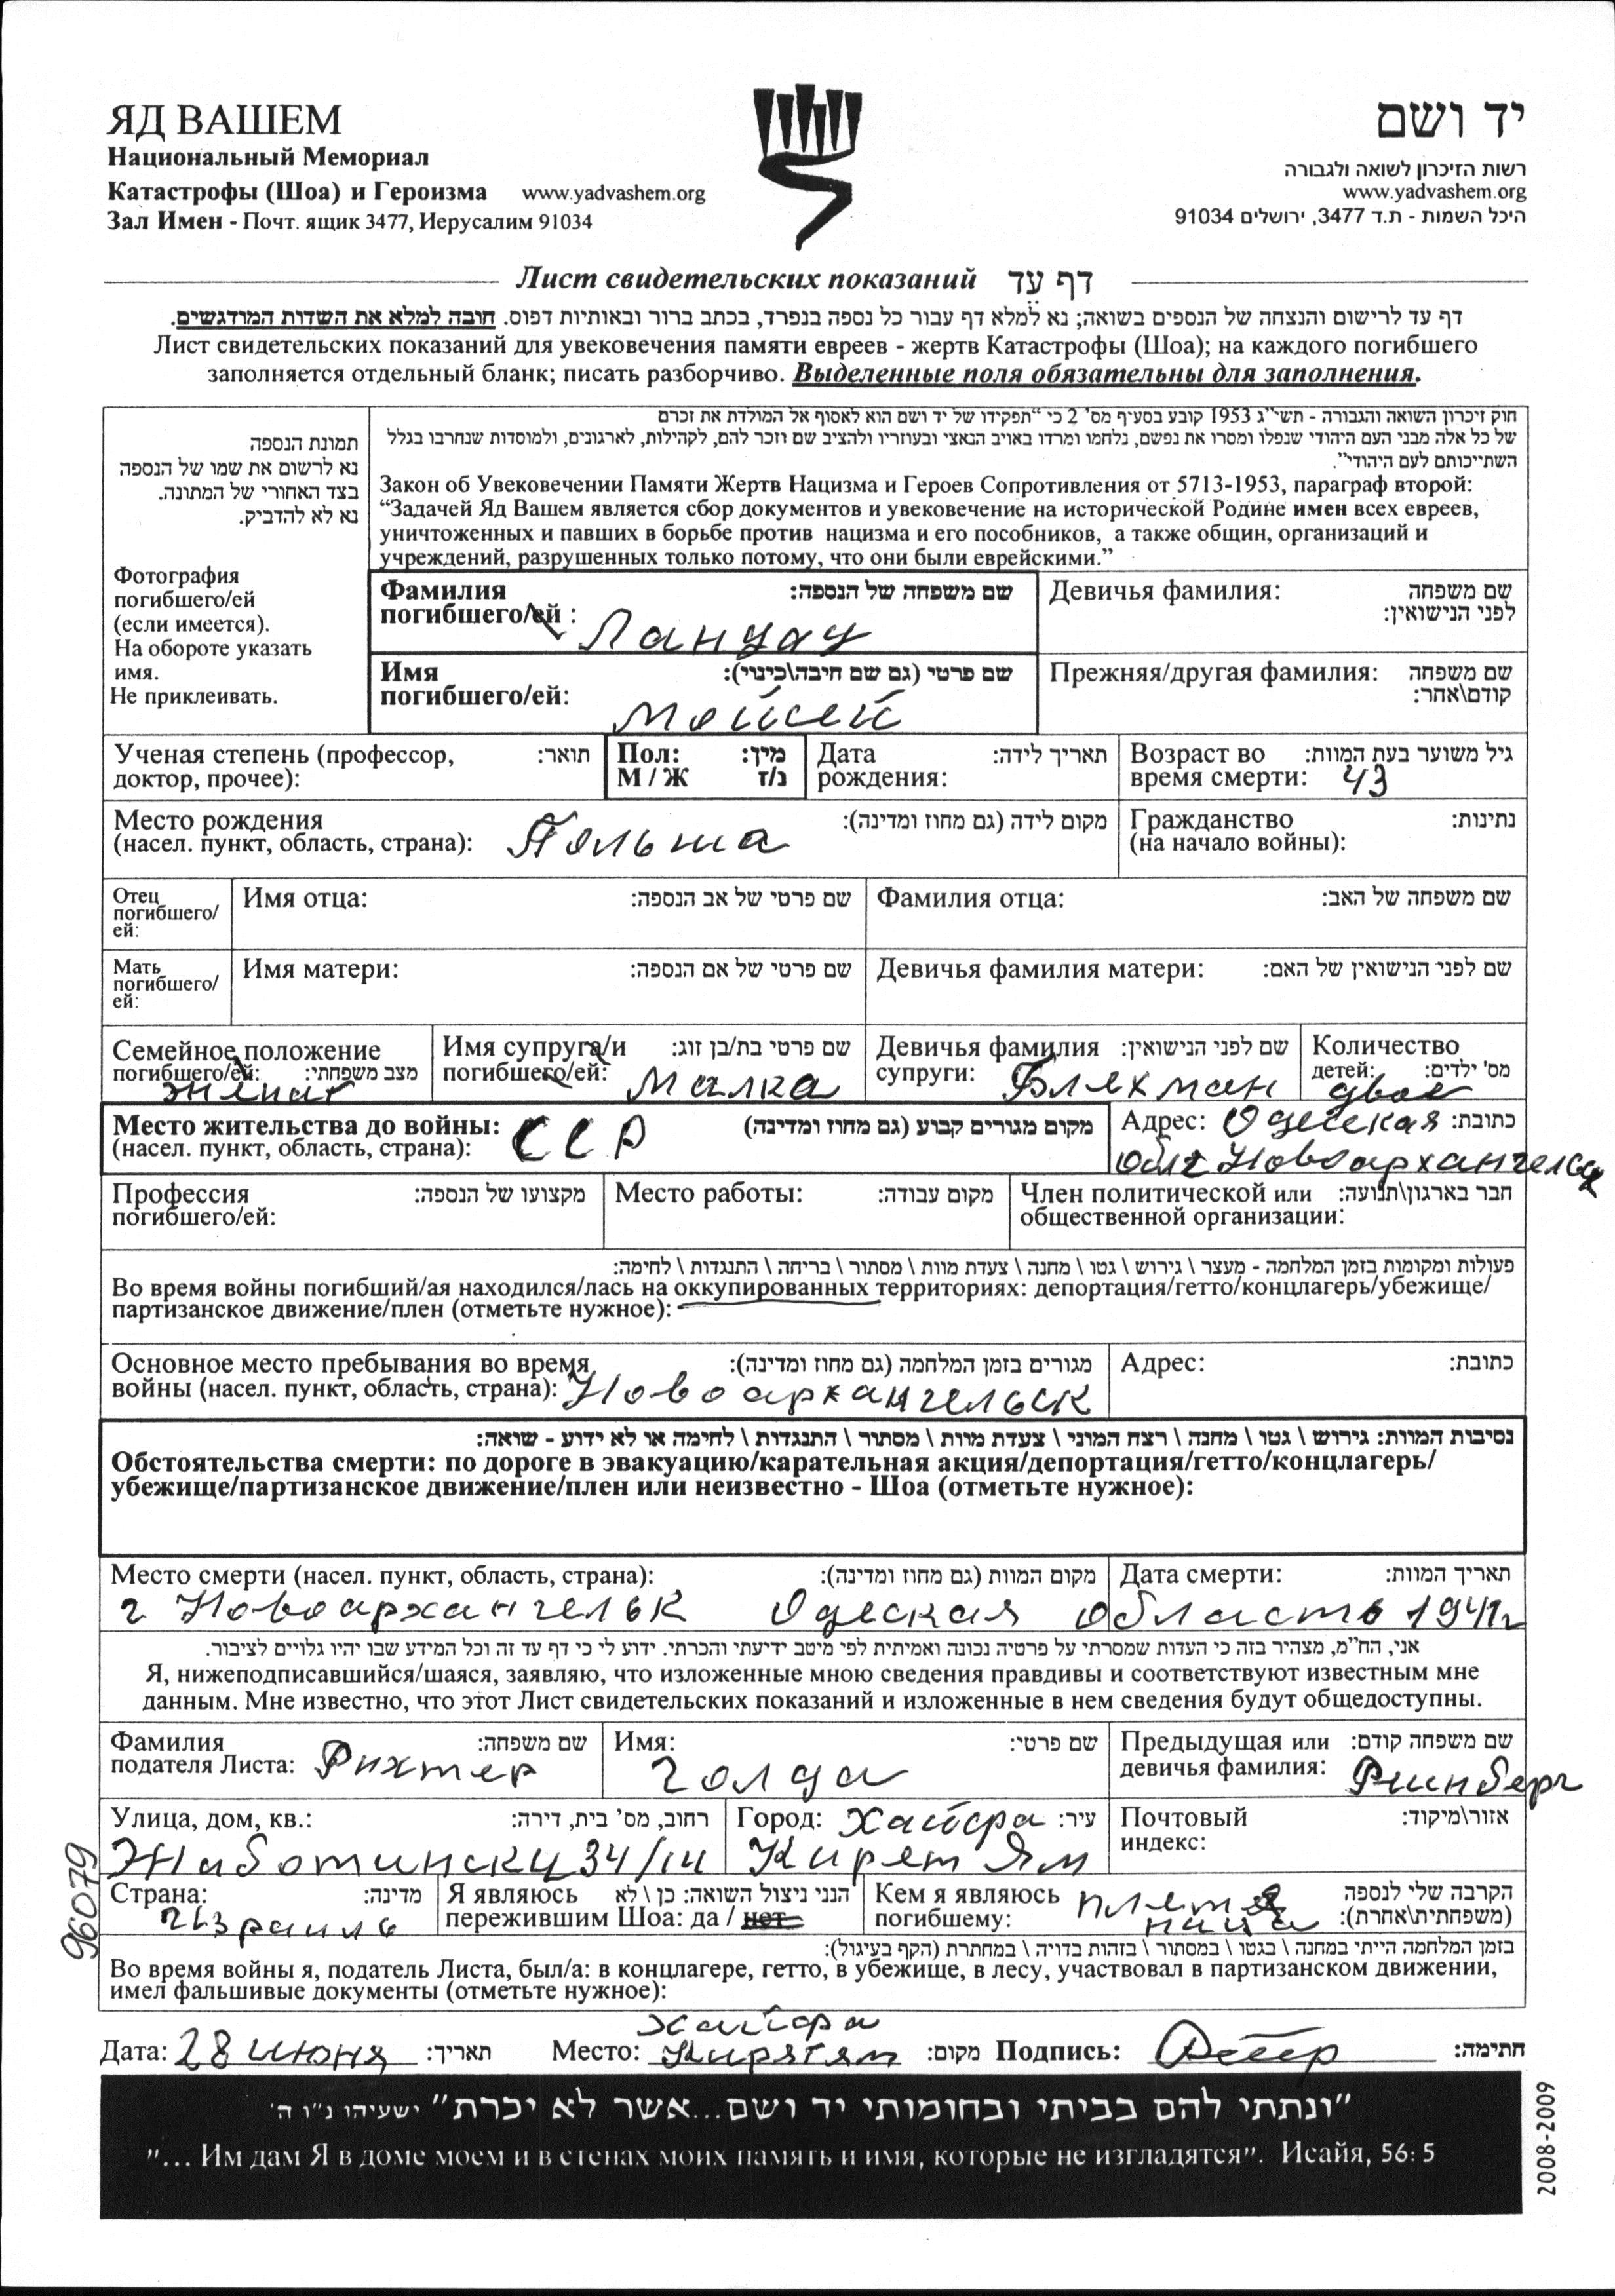 ЯД ВАШЕМ
Национальный Мемориал
Катастрофы (Шоа) и Героизма www.yadvashem.org
Зал Имен - Почт. ящик 3477, Иерусалим 91034
יד ושם
רשות הזיכרון לשואה ולגבורה
www.yadvashem.org
היכל השמות - ת.ד 3477, ירושלים 91034
Лист свидетельских показаний דף עד
דף עד לרישום והנצחה של הנספים בשואה; נא למלא דף עבור כל נספה בנפרד, בכתב ברור ובאותיות דפוס. חובה למלא את השדות המודגשים.
Лист свидетельских показаний для увековечения памяти евреев - жертв Катастрофы (Шоа); на каждого погибшего
заполняется отдельный бланк; писать разборчиво. Выделенные поля обязательны для заполнения.
תמונת הנספה
נא לרשום את שמו של הנספה
בצד האחורי של המתונה.
נא לא להדביק.
Фотография
погибшего/ей
(если имеется).
На обороте указать
имя.
Не приклеивать.
חוק זיכרון השואה והגבורה - תשי"ג 1953 קובע בסעיף מס' 2 כי "תפקידו של יד ושם הוא לאסוף אל המולדת את זכרם
של כל אלה מבני העם היהודי שנפלו ומסרו את נפשם, נלחמו ומרדו באויב הנאצי ובעוזריו ולהציב שם וזכר להם, לקהילות, לארגונים, ולמוסדות שנחרבו בגלל
השתייכותם לעם היהודי".
Закон об Увековечении Памяти Жертв Нацизма и Героев Сопротивления от 5713-1953, параграф второй:
“Задачей Яд Вашем является сбор документов и увековечение на исторической Родине имен всех евреев,
уничтоженных и павших в борьбе против нацизма и его пособников, а также общин, организаций и
учреждений, разрушенных только потому, что они были еврейскими.”
Фамилия שם משפחה של הנספה:
погибшего/ей : Ландау
Девичья фамилия: שם משפחה
לפני הנישואין:
Имя שם פרטי (גם שם חיבה\כינוי):
погибшего/ей: Мойсей
Прежняя/другая фамилия: שם משפחה
קודם\אחר:
Ученая степень (профессор, תואר:
доктор, прочее):
Пол: מין:
М / Ж נ/ז
Дата תאריך לידה:
рождения:
Возраст во גיל משוער בעת המוות:
время смерти: 43
Место рождения מקום לידה (גם מחוז ומדינה):
(насел. пункт, область, страна): Польша
Гражданство נתינות:
(на начало войны):
Отец
погибшего/
ей:
Имя отца: שם פרטי של אב הנספה:
Фамилия отца: שם משפחה של האב:
Мать
погибшего/
ей:
Имя матери: שם פרטי של אם הנספה:
Девичья фамилия матери: שם לפני הנישואין של האם:
Семейное положение
погибшего/ей: מצב משפחתי:
женат
Имя супруга/и שם פרטי בת/בן זוג:
погибшего/ей: Малка
Девичья фамилия שם לפני הנישואין:
супруги: Блехман
Количество
детей: מס' ילדים:
двое
Место жительства до войны: מקום מגורים קבוע (גם מחוז ומדינה)
(насел. пункт, область, страна): ССР
Адрес: Одеская כתובת:
обл г Новоархангельск
Профессия מקצועו של הנספה:
погибшего/ей:
Место работы: מקום עבודה:
Член политической или חבר בארגון\תנועה:
общественной организации:
פעולות ומקומות בזמן המלחמה - מעצר \ גירוש \ גטו \ מחנה \ צעדת מוות \ מסתור \ בריחה \ התנגדות \ לחימה:
Во время войны погибший/ая находился/лась на оккупированных территориях: депортация/гетто/концлагерь/убежище/
партизанское движение/плен (отметьте нужное):
Основное место пребывания во время מגורים בזמן המלחמה (גם מחוז ומדינה):
войны (насел. пункт, область, страна): Новоархангельск
Адрес: כתובת:
נסיבות המוות: גירוש \ גטו \ מחנה \ רצח המוני \ צעדת מוות \ מסתור \ התנגדות \ לחימה או לא ידוע - שואה:
Обстоятельства смерти: по дороге в эвакуацию/карательная акция/депортация/гетто/концлагерь/
убежище/партизанское движение/плен или неизвестно - Шоа (отметьте нужное):
Место смерти (насел. пункт, область, страна): מקום המוות (גם מחוז ומדינה):
Дата смерти: תאריך המוות:
г Новоархангельк Одеская область 1941г
אני, הח"מ, מצהיר בזה כי העדות שמסרתי על פרטיה נכונה ואמיתית לפי מיטב ידיעתי והכרתי. ידוע לי כי דף עד זה וכל המידע שבו יהיו גלויים לציבור.
Я, нижеподписавшийся/шаяся, заявляю, что изложенные мною сведения правдивы и соответствуют известным мне
данным. Мне известно, что этот Лист свидетельских показаний и изложенные в нем сведения будут общедоступны.
Фамилия שם משפחה:
подателя Листа: Рихтер
Имя: שם פרטי:
Голда
Предыдущая или שם משפחה קודם:
девичья фамилия:
Улица, дом, кв.: רחוב, מס' בית, דירה:
Жаботински 34/14
Город: Хайфа עיר:
Кирет Ям
Почтовый אזור\מיקוד:
индекс:
Страна: מדינה:
Израиль
Я являюсь הנני ניצול השואה: כן \ לא
пережившим Шоа: да / нет
Кем я являюсь הקרבה שלי לנספה
погибшему: племянница (משפחתית\אחרת):
בזמן המלחמה הייתי במחנה \ בגטו \ במסתור \ בזהות בדויה \ במחתרת (הקף בעיגול):
Во время войны я, податель Листа, был/а: в концлагере, гетто, в убежище, в лесу, участвовал в партизанском движении,
имел фальшивые документы (отметьте нужное):
Хайфа
Дата: 28 июня תאריך: Место: Кирятям מקום: Подпись: חתימה:
"ונתתי להם בביתי ובחומותי יד ושם...אשר לא יכרת" ישעיהו נ"ו ה'
"... Им дам Я в доме моем и в стенах моих память и имя, которые не изгладятся". Исайя, 56: 5
96079
2008-2009